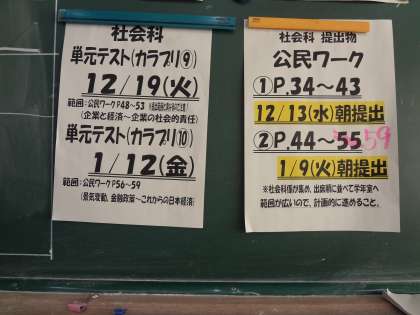 社会科
単元テスト(カラプリ⑨)
12/19(火)
範囲:公民ワークP48~53
(企業と経済~企業の社会的責任)
単元テスト(カラプリ⑩)
1/12(金)
範囲:公民ワークP56~59
(景気変動、金融政策~これからの日本経済)
社会科 提出物
公民ワーク
①P.34~43
12/13(水)朝提出
②P.44~55 59
1/9(火)朝提出
※社会科係が集め、出席順に並べて学年室へ
範囲が広いので、計画的に進めること。